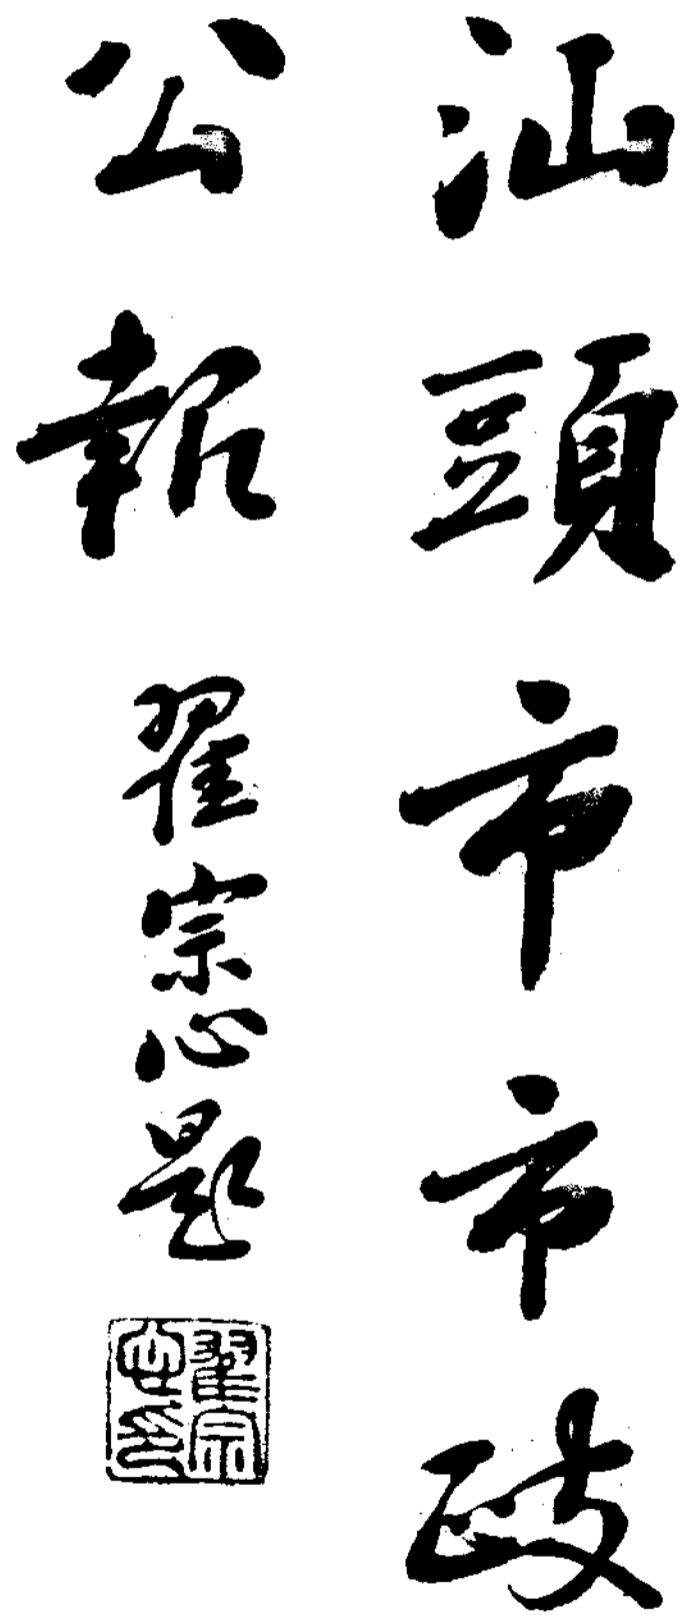 汕頭市市政
公報
翟宗心題
翟宗
心印